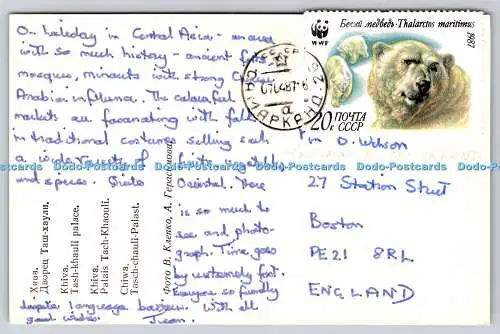 On holiday in Central Asia - an area
with so much history - ancient forts,
mosques, minarets with strong
Arabian influence. The colourful
markets are fascinating with folk
in traditional costumes selling such
a wide variety of fruits, vegetables
and spices. Quite Oriental. There
is so much to
see and photo-
graph. Time goes
by extremely fast.
Everyone so friendly
despite language barriers. With all
good wishes Jean.
Хива.
Дворец Таш-хаули.
Khiva.
Tash-khauli palace.
Khiva.
Palais Tach-Khaouli.
Chiwa.
Tasch-chauli-Palast.
Фото В. Клепко, А.
WWF
Белый медведь·Thalarctos maritimus
1987
20к ПОЧТА
СССР
СССР
САМАРКАНД
а
D. Wilson
27 Station Street
Boston
PE21 8RL
ENGLAND
Dodo-Postcards